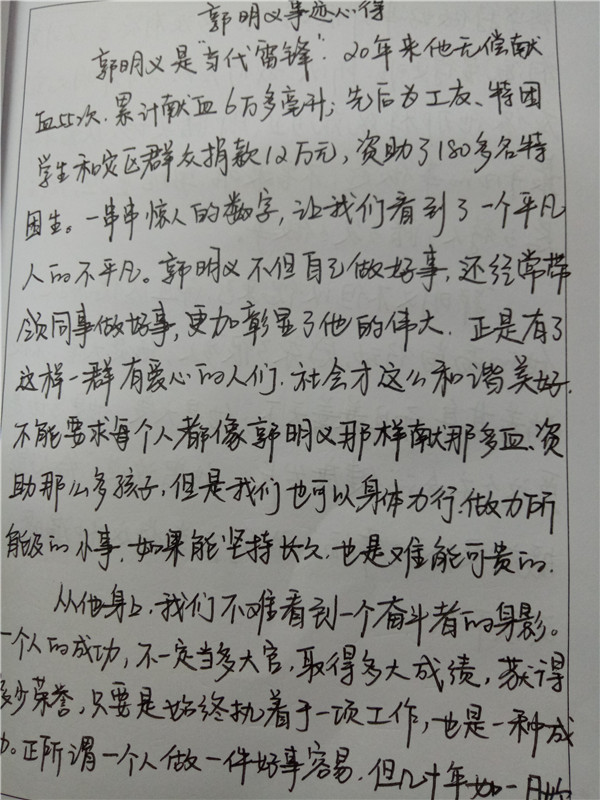 郭明义事迹心得
郭明义是"当代雷锋". 20年来他无偿献
血55次.累计献血6万多毫升;先后为工友、特困
学生和灾区群众捐款12万元,资助了180多名特
困生。一串串惊人的数字,让我们看到了一个平凡
人的不平凡。郭明义不但自己做好事,还经常带
领同事做好事,更加彰显了他的伟大.正是有了
这样一群有爱心的人们.社会才这么和谐美好.
不能要求每个人都像郭明义那样献那多血、资
助那么多孩子,但是我们也可以身体力行.做力所
能及的小事.如果能坚持长久.也是难能可贵的.
从他身上,我们不难看到一个奋斗者的身影。
一个人的成功,不一定当多大官,取得多大成绩,获得
多少荣誉,只要是始终执着于一项工作,也是一种成
功。正所谓一个人做一件好事容易.但几十年如一日的